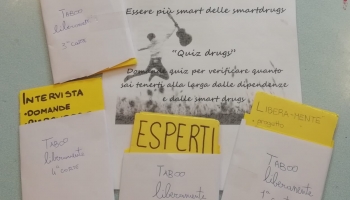 Essere più smart delle smartdrugs
"Quiz drugs"
Domande quiz per verificare quanto
sai tenerti alla larga dalle dipendenze
e dalle smart drugs
TABOO
liberamente
INTERVISTA
-DOMANDE
TABOO
liberamente
ESPERTI
TABOO
liberamente
LIBERA-MENTE
TABOO
liberamente